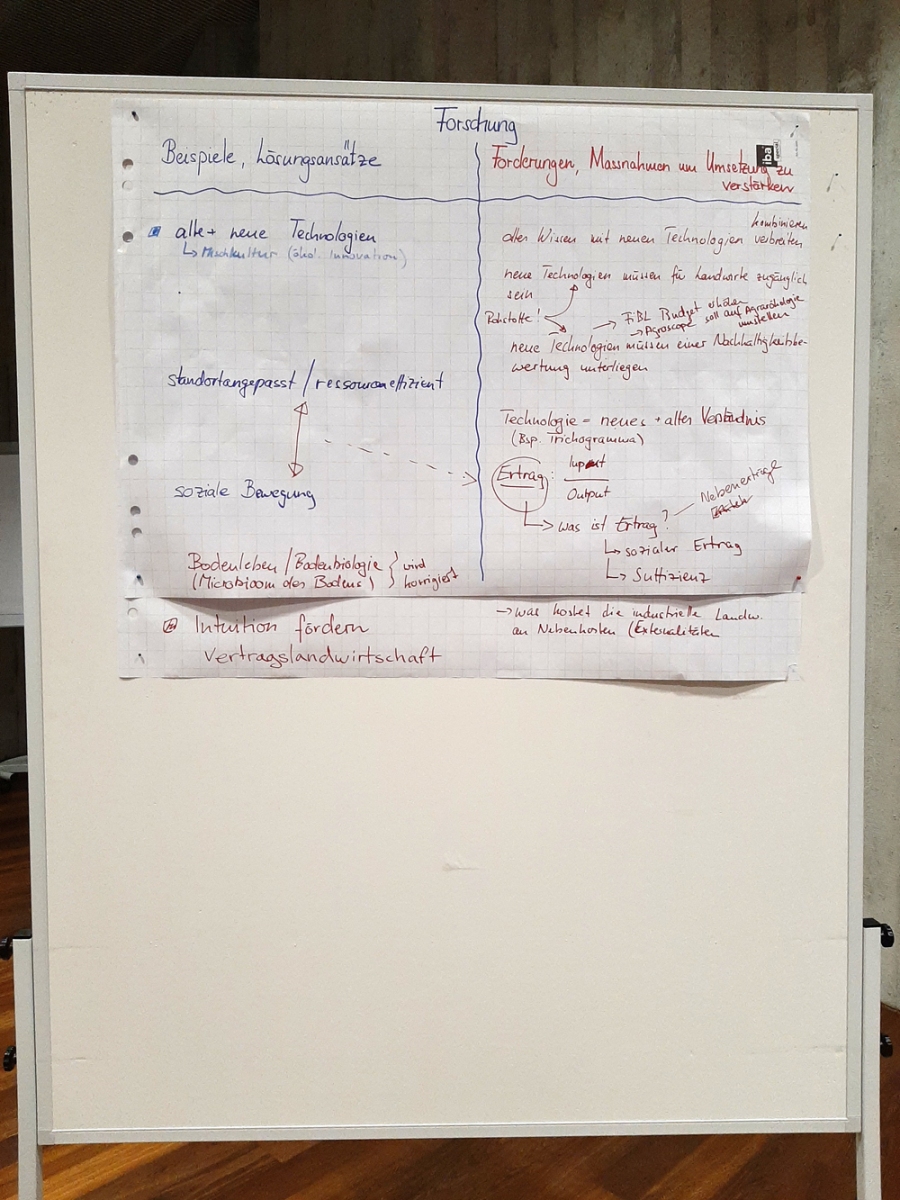 Forschung
Beispiele, Lösungsansätze
alte + neue Technologien
↳ Mischkultur (ökol. Innovation)
standortangepasst / ressourceneffizient
soziale Bewegung
Bodenleben / Bodenbiologie } wird
(Microbioom des Bodens) korrigiert
Intuition fördern
Vertragslandwirtschaft
Forderungen, Massnahmen um Umsetzung zu
verstärken
iba
kombinieren
altes Wissen mit neuen Technologien verbreiten
neue Technologien müssen für Landwirte zugänglich
sein
Rohstoffe!
→ FiBL Budget erhöhen
→ Agroscope soll auf Agrarökologie
umstellen
neue Technologien müssen einer Nachhaltigkeitsbe-
wertung unterliegen
Technologie = neues + altes Verständnis
(Bsp. Trichogramma)
Ertrag : Input
Output
↳ was ist Ertrag? — Nebenerträge
↳ sozialer Ertrag
↳ Suffizienz
→ was kostet die industrielle Landw.
an Nebenkosten (Externalitäten